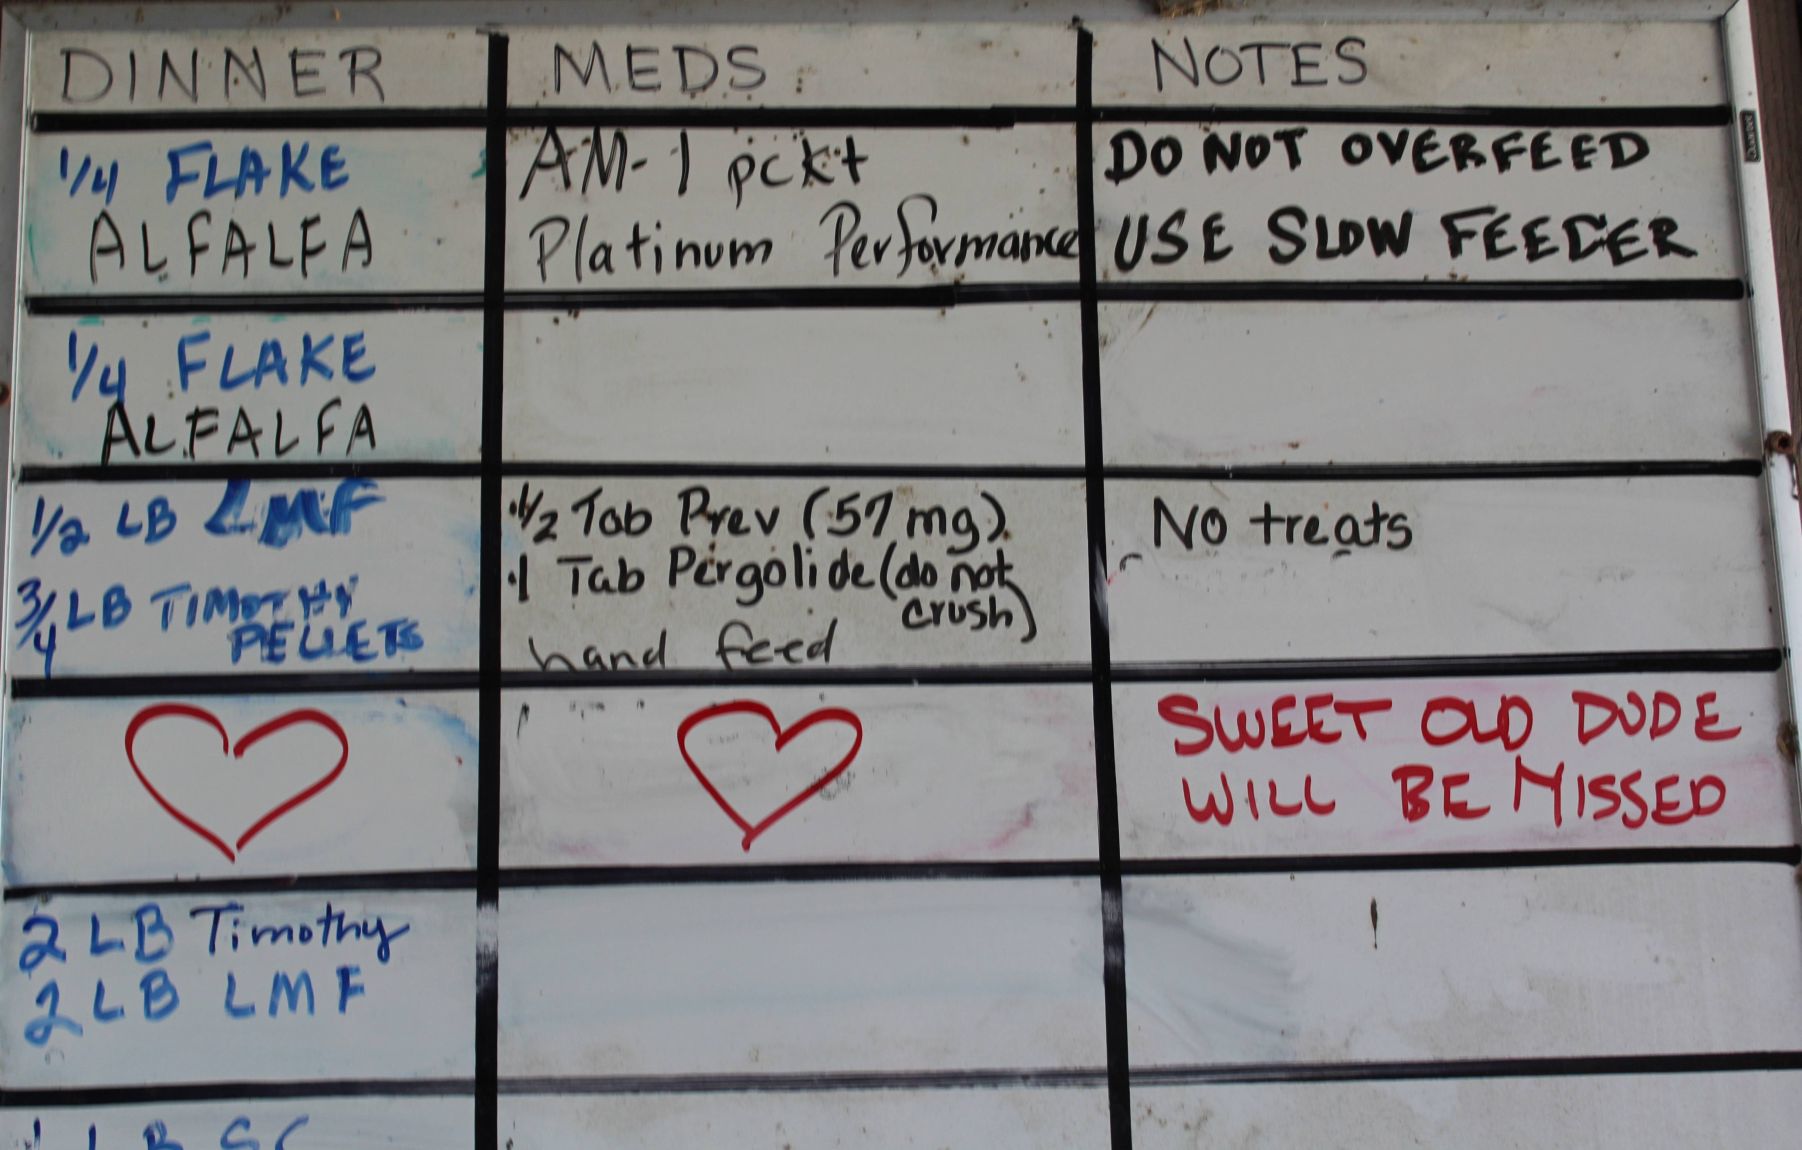 DINNER MEDS NOTES
1/4 FLAKE
ALFALFA
AM-1 pckt
Platinum Performance
DO NOT OVERFEED
USE SLOW FEEDER
1/4 FLAKE
ALFALFA
1/2 LB LMF
3/4 LB TIMOTHY
PELLETS
1/2 Tab Prev (57mg)
1 Tab Pergolide (do not
crush)
hand feed
No treats
SWEET OLD DUDE
WILL BE MISSED
2 LB Timothy
2 LB LMF